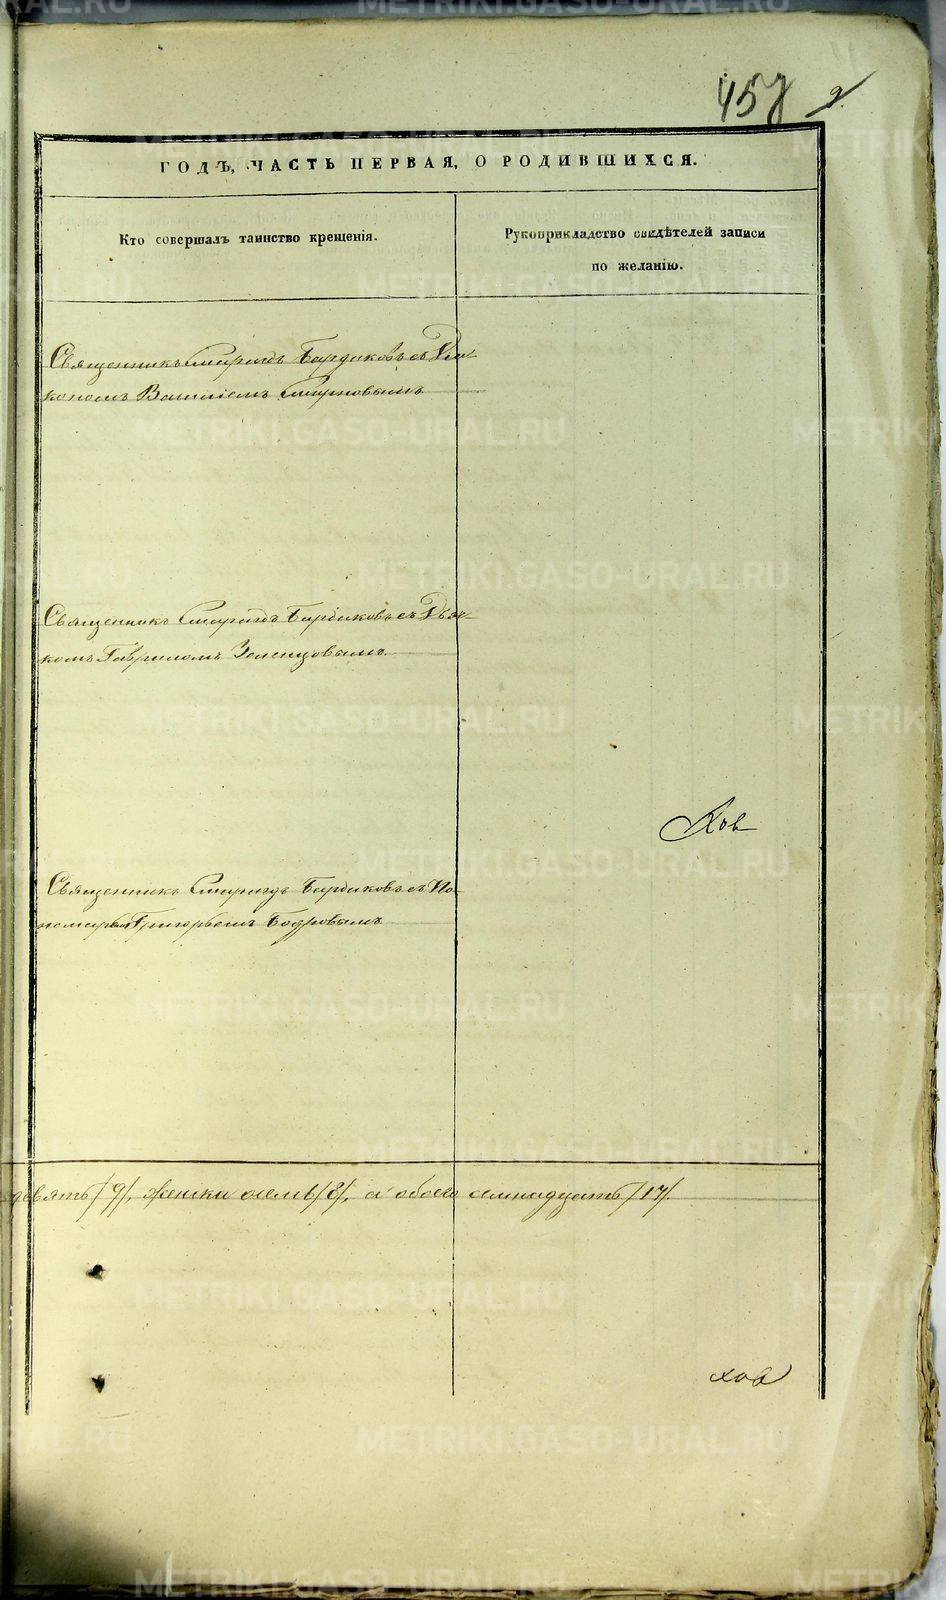 458
ГОДЪ, ЧАСТЬ ПЕРВАЯ, О РОДИВШИХСЯ.
Кто совершалъ таинство крещенія.
Рукоприкладство свидѣтелей записи
по желанію.
Священникъ Спиридъ Бирдиковъ съ Діа-
кономъ Василіемъ Смирновымъ
Священникъ Спиридъ Бирдиковъ съ Дьяч-
комъ Гавриломъ Зеленцовымъ.
Ков
Священникъ Спиридъ Бирдиковъ съ По-
номаремъ Григорьемъ Бодровымъ
девять /9/, женска осемь /8/, а обоего семнадцать /17/.
ков
METRIKI.GASO-URAL.RU